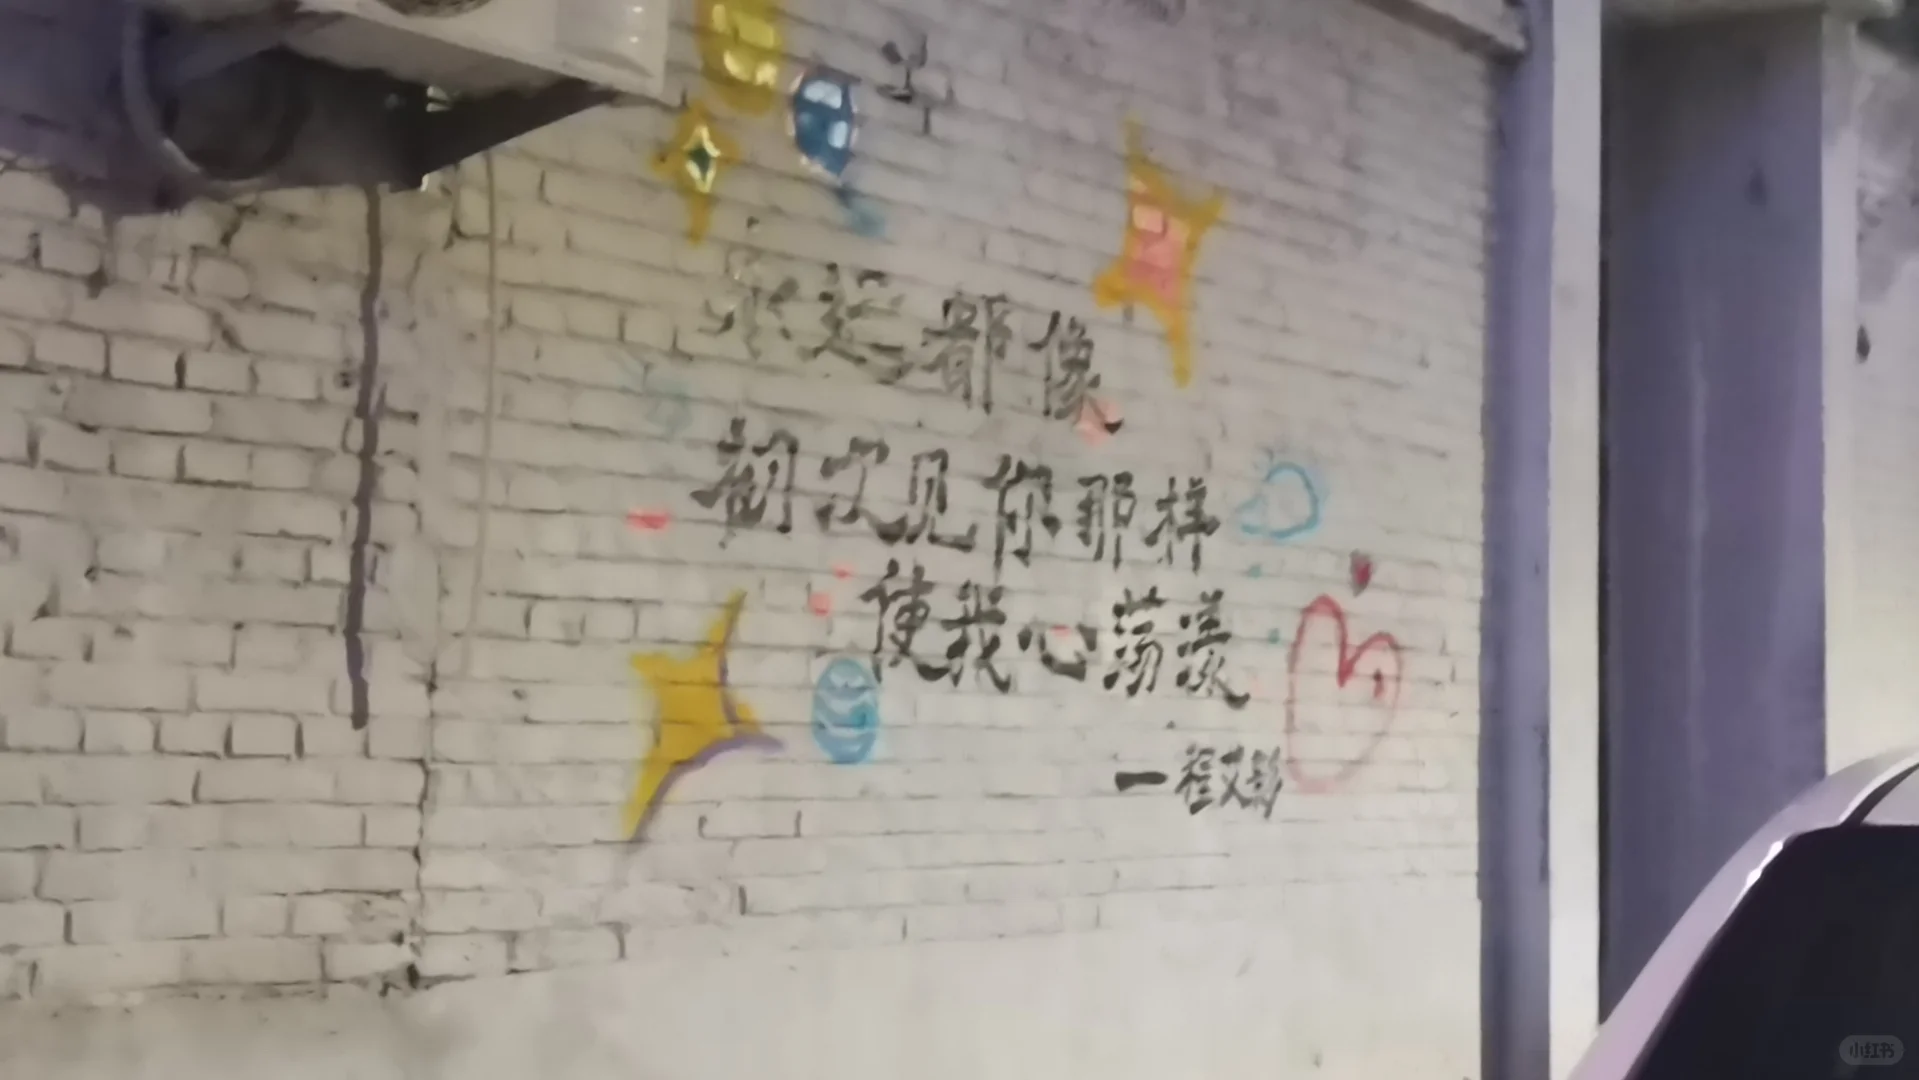 永远都像
初次见你那样
使我心荡漾
一程又影
小红书